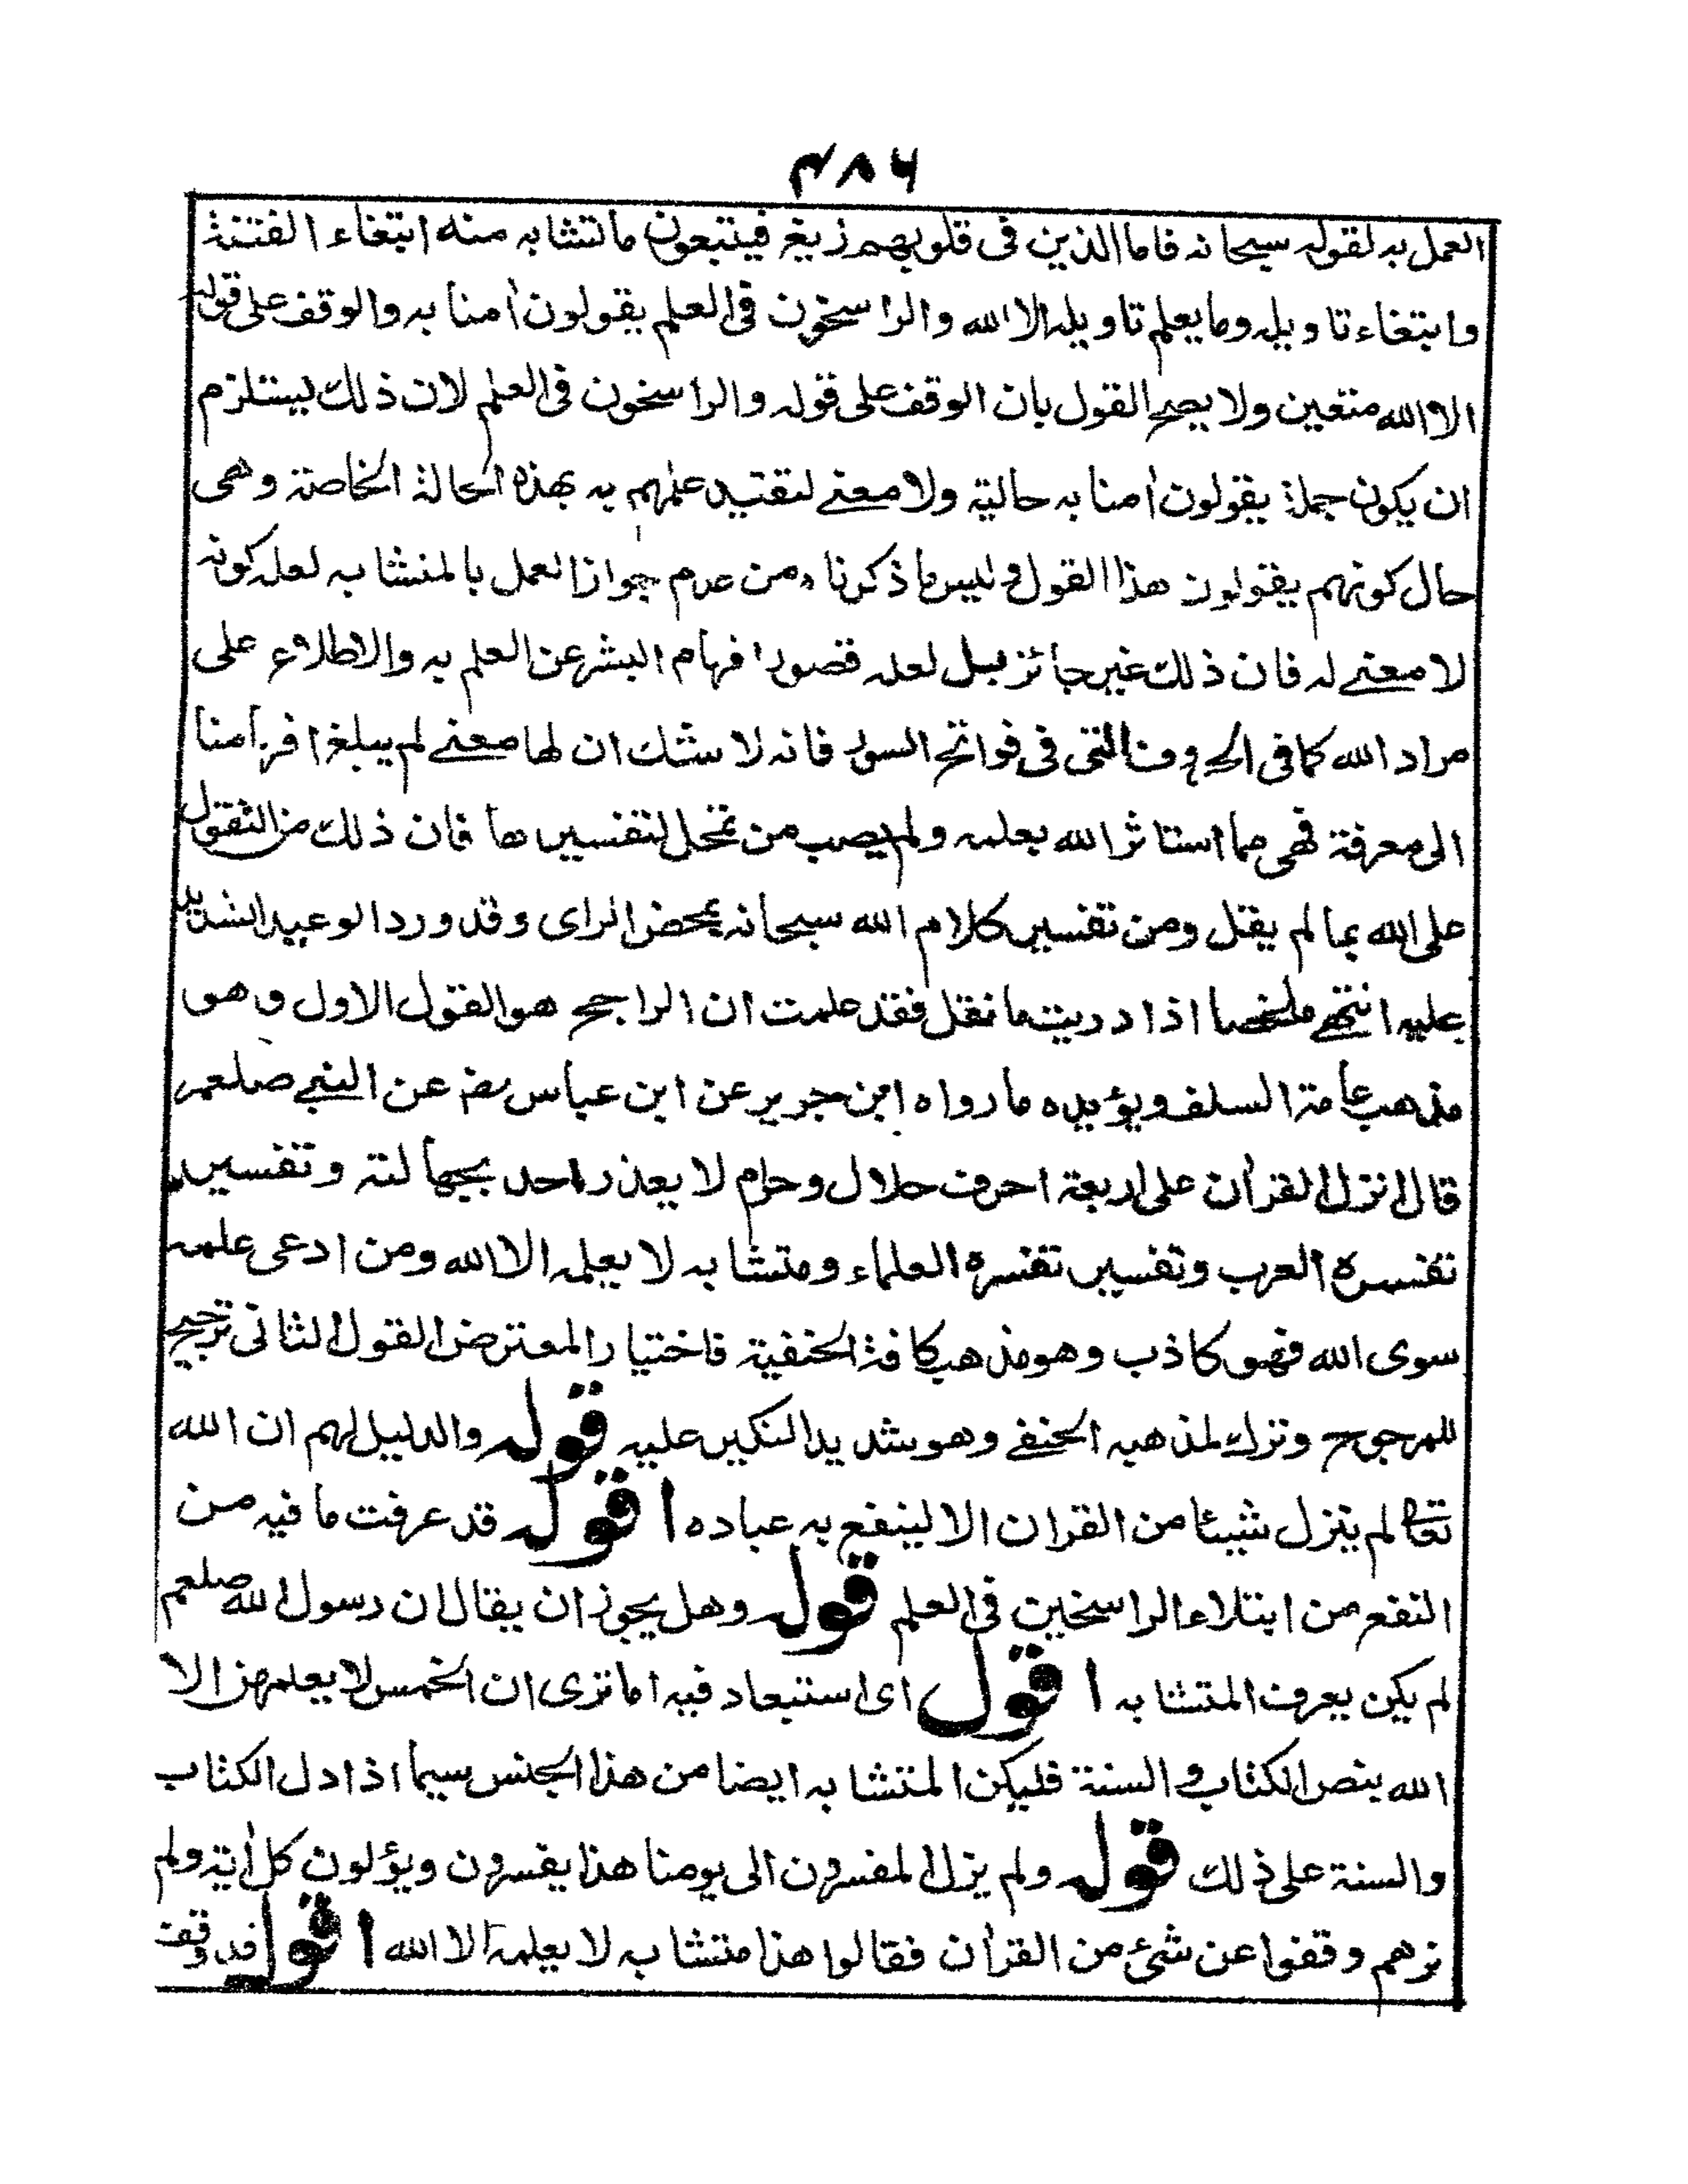 ۴۸۶
العمل به لقوله سبحانه فاما الذين فى قلوبهم زيغ فيتبعون ما تشابه منه ابتغاء الفتنة
وابتغاء تاويله وما يعلم تاويله الا الله والراسخون فى العلم يقولون اٰمنا به والوقف على قوله
الا الله متعين ولا يصح القول بان الوقف على قوله والراسخون فى العلم لان ذلك يستلزم
ان يكون جملة يقولون اٰمنا به حالية ولا معنے لتقييد علمهم به بهذه الحالة الخاصة وهى
حال كونهم يقولون هذا القول وليس ما ذكرناه من عدم جواز العمل بالمتشابه لعله كونه
لا معنے له فان ذلك غير جائز بل لعله قصور افهام البشر عن العلم به والاطلاع على
مراد الله كما فى الحروف التى فى فواتح السور فانه لا شك ان لها معنے لم يبلغ افهامنا
الى معرفة فهى مما استاثر الله بعلمه ولم يصب من تمحل لتفسيرها فان ذلك من التقول
على الله بما لم يقل ومن تفسير كلام الله سبحانه بمحض الراى وقد ورد الوعيد الشديد
عليه انتهے ملخصا اذا دريت ما نقل فقد علمت ان الراجح هو القول الاول وهو
مذهب عامة السلف ويؤيده ما رواه ابن جرير عن ابن عباس رضہ عن النبے صلعم
قال انزل القراٰن على اربعة احرف حلال وحرام لا يعذر احد بجهالته وتفسير
تفسره العرب وتفسير تفسره العلماء ومتشابه لا يعلمه الا الله ومن ادعى علمه
سوى الله فهو كاذب وهو مذهب كافة الحنفية فاختيار المعترض القول الثانى ترجيح
للمرجوح وترك لمذهبه الحنفے وهو شديد النكير عليه قوله والدليل لهم ان الله
تعالى لم ينزل شيئا من القراٰن الا لينفع به عباده اقول قد عرفت ما فيه من
النفع من ابتلاء الراسخين فى العلم قوله وهل يجوز ان يقال ان رسول الله صلعم
لم يكن يعرف المتشابه اقول اى استبعاد فيه اما ترى ان الخمس لا يعلمهن الا
الله بنص الكتاب والسنة فليكن المتشابه ايضا من هذا الجنس سيما اذا دل الكتاب
والسنة على ذلك قوله ولم يزل المفسرون الى يومنا هذا يفسرون ويؤلون كل اٰية ولم
نرهم وقفوا عن شئ من القراٰن فقالوا هذا متشابه لا يعلمه الا الله اقول قد وقف